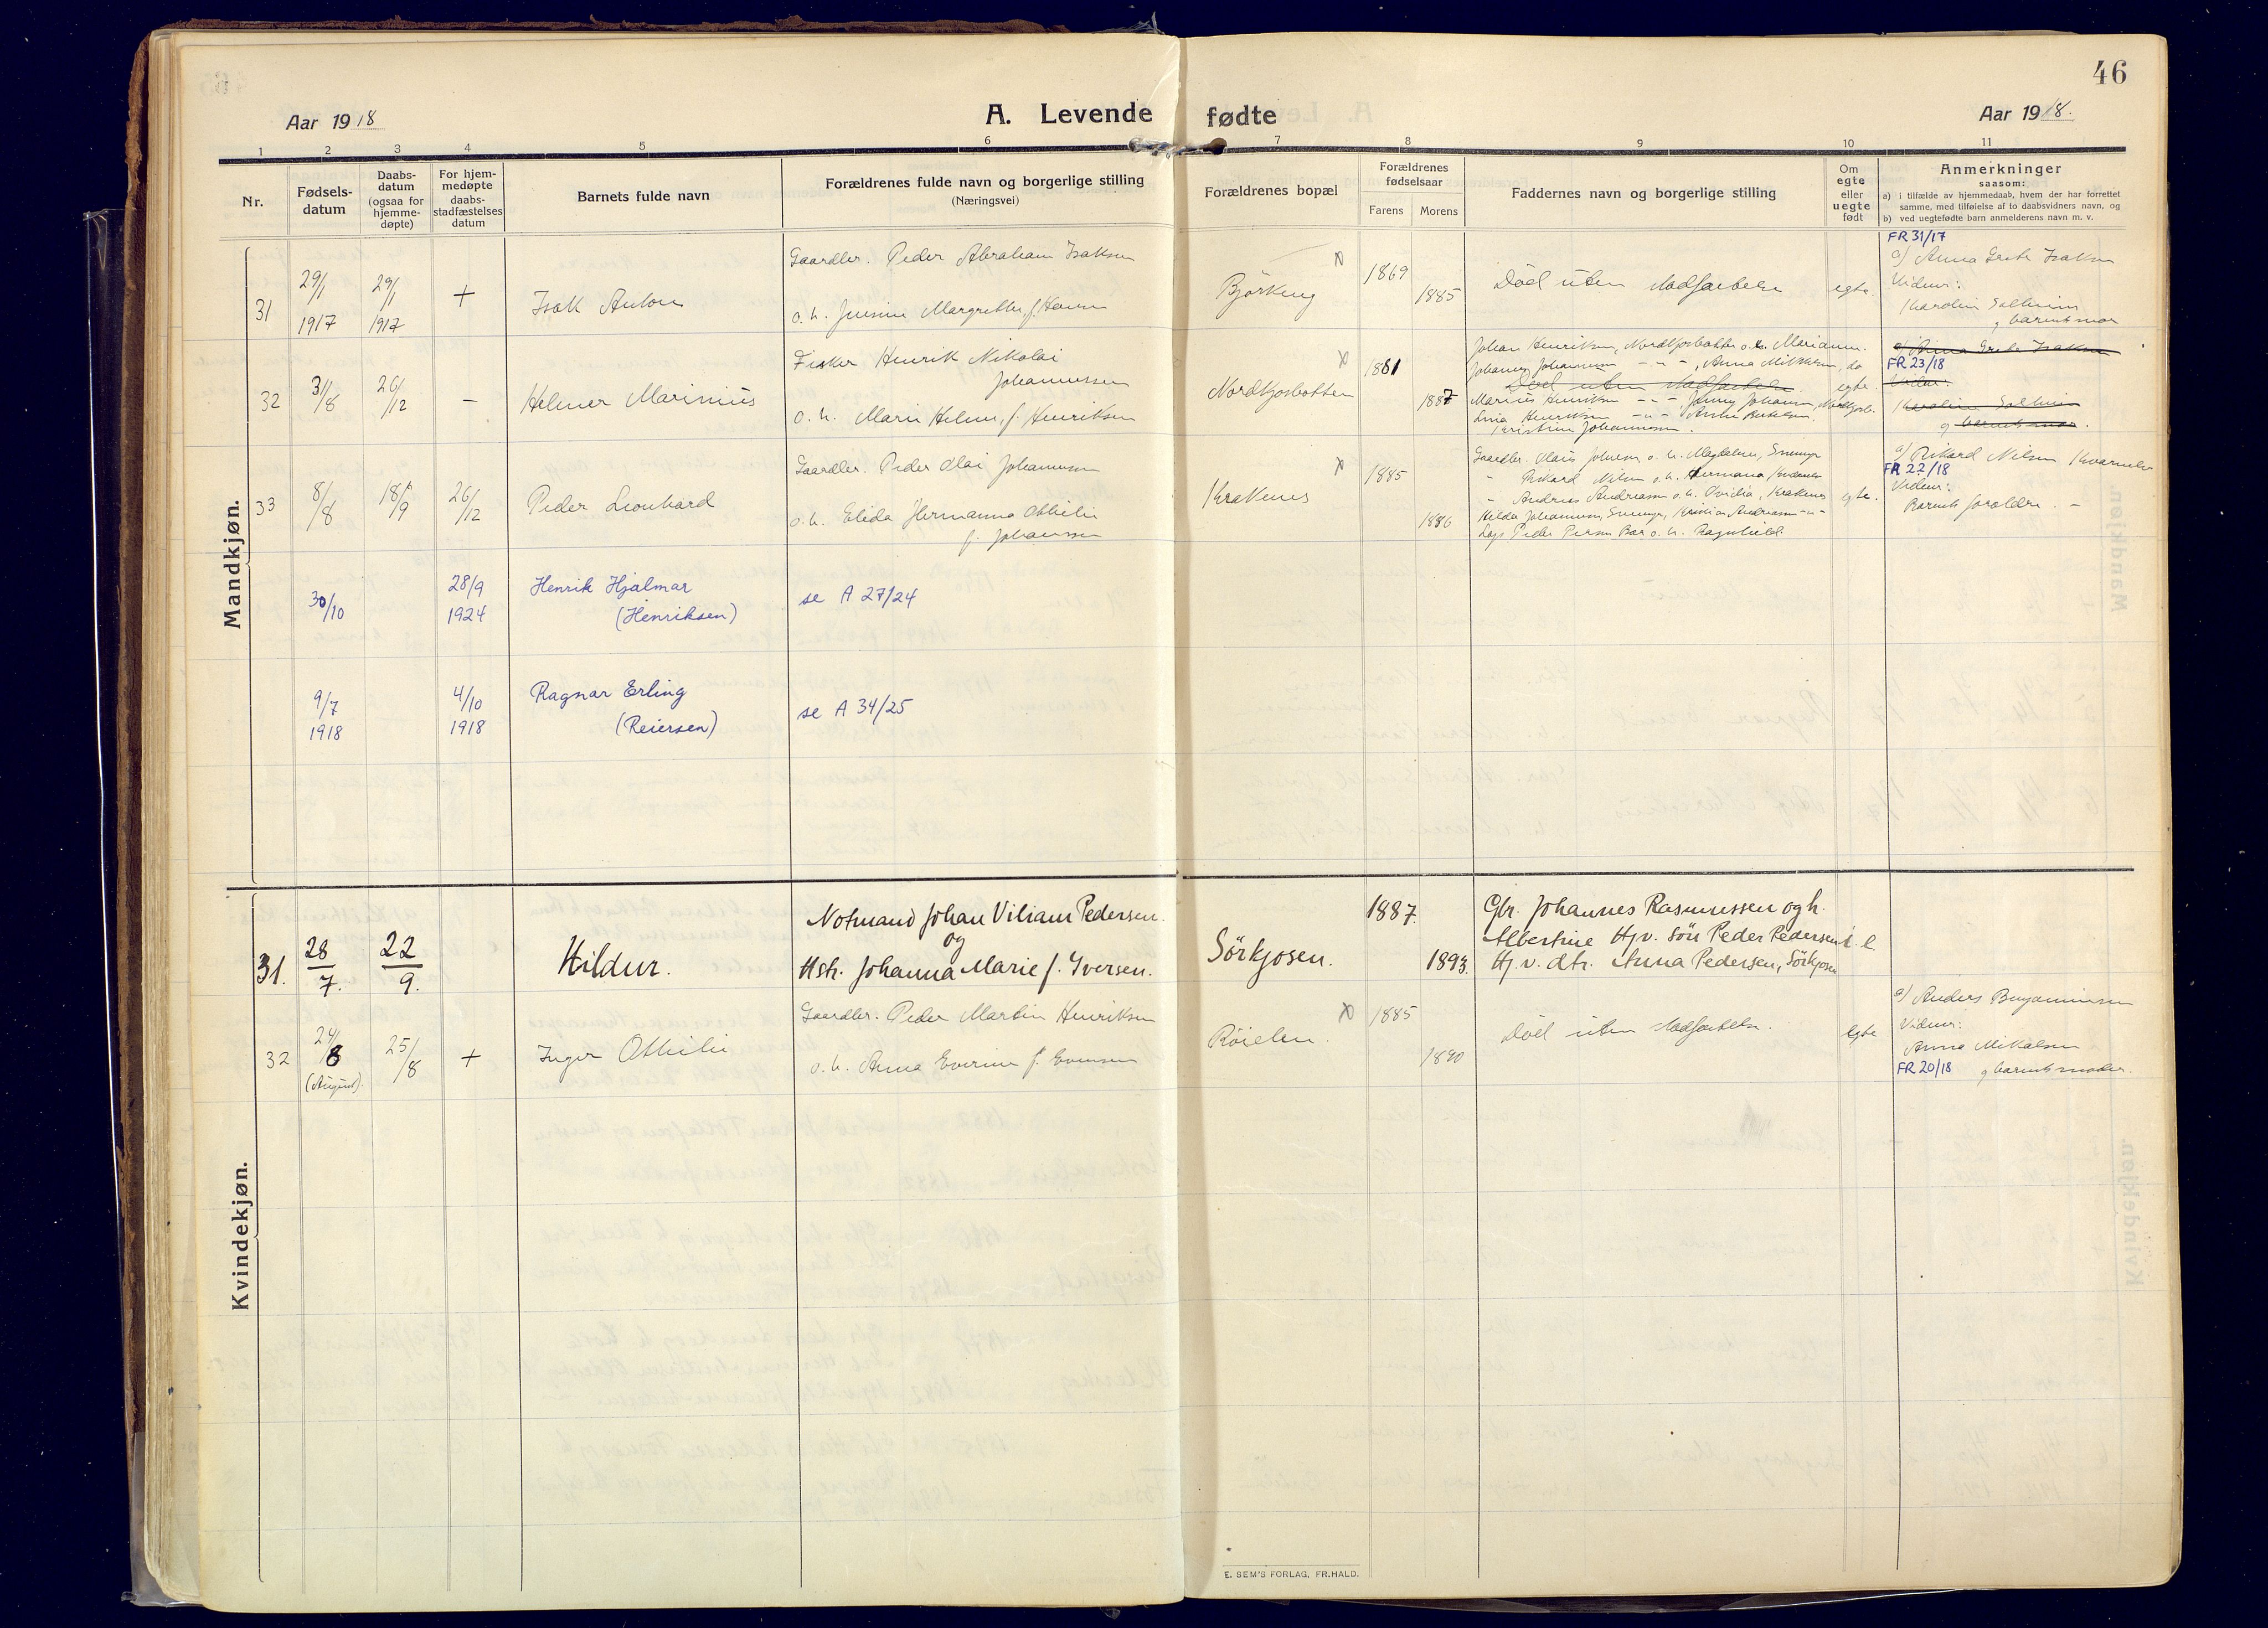 46
Aar 1918
A. Levende fødte
Aar 1918.
1 2 3 4 5 6 7 8 9 10 11
Nr.
Fødsels-
datum
Daabs-
datum
(ogsaa for
hjemme-
døpte)
For hjem-
medøpte
daabs-
stadfæstelses
datum
Barnets fulde navn
Forældrenes fulde navn og borgerlige stilling
(Næringsvei)
Forældrenes bopæl
Forældrenes
fødselsaar
Farens Morens
Faddernes navn og borgerlige stilling
Om
egte
eller
uegte
født
Anmerkninger
saasom:
a) i tilfælde av hjemmedaab, hvem der har forrettet
samme, med tilføielse af to daabsvidners navn, og
b) ved uegtefødte barn anmelderens navn m. v.
Mandkjøn.
31
29/1
1917
29/1
1917
+
Isak Anton
Gaardbr. Peder Abraham Isaksen
o. h. Margrethe, f. Hansen
Björkeng
1869
1885
Död uten stadfæstelse
egte.
FR 31/17
a) Anna Grete Isaksen
Vidner:
Karolin Solheim
g barnets mor
32
31/8
26/12
-
Helmer Marinius
Fisker Henrik Nikolai
Johannessen
o. h. Marie Helene, f. Henriksen
Nordkjosbotten
1881
1887
Johan Henriksen, Nordkjosbotten o. h. Marianne.
Johannes Johannessen - " - , Anna Mikkelsen, do
Död uten stadfæstelse.
Marius Henriksen - " - , Jenny Johansen, Nordkjosb.
Lina Henriksen - " -
Kristine Johannessen.
egte.
a) Anna Grete Isaksen
FR 23/18
Vidner:
Karoline Solheim
g barnets mor.
33
8/8
18/9
26/12
Peder Leonhard
Gaardbr. Peder Olai Johannesen
o. h. Elida Hermanna Othilie
f. Johansen
Krakenes
1885
1886
Gaardbr. Olais Johnsen o. h. Magdalena,
" Rikard Nilsen o. h. Hermana,
" Andreas Andreassen o. h. Ovidia, Krakenes
Hilda Johannesen, Kristian Andreassen - " -
Peder Persen Bar o. h. Ragnhild.
egte.
a) Rikard Nilsen
FR 22/18
Vidner:
Barnets foreldre. -
30/10
28/9
1924
Henrik Hjalmar
(Henriksen)
se A 27/24
9/7
1918
4/10
1918
Ragnar Erling
(Reiersen)
se A 34/25
Kvindekjøn.
31.
28/7.
22/9.
Hildur.
Notmand Johan Viliam Pedersen.
og
Hstr. Johanna Marie f. Iversen.
Sörkjosen.
1887.
1893.
Gbr. Johannes Rasmussen og h.
Albertine Hj.v. sön Peder Pedersen
Hj.v. dtr. Anna Pedersen, Sörkjosen
e
32
24/8
(August).
25/8
+
Inger Othilie
Gaardbr. Peder Martin Henriksen
o. h. Anna Everine f. Evensen
Röielen.
1885
1890
Död uten stadfæstelse.
egte
a) Anders Benjaminsen
Vidner:
Anna Mikalsen
FR 20/18 g barnets moder.
E. SEM'S FORLAG, FR.HALD.